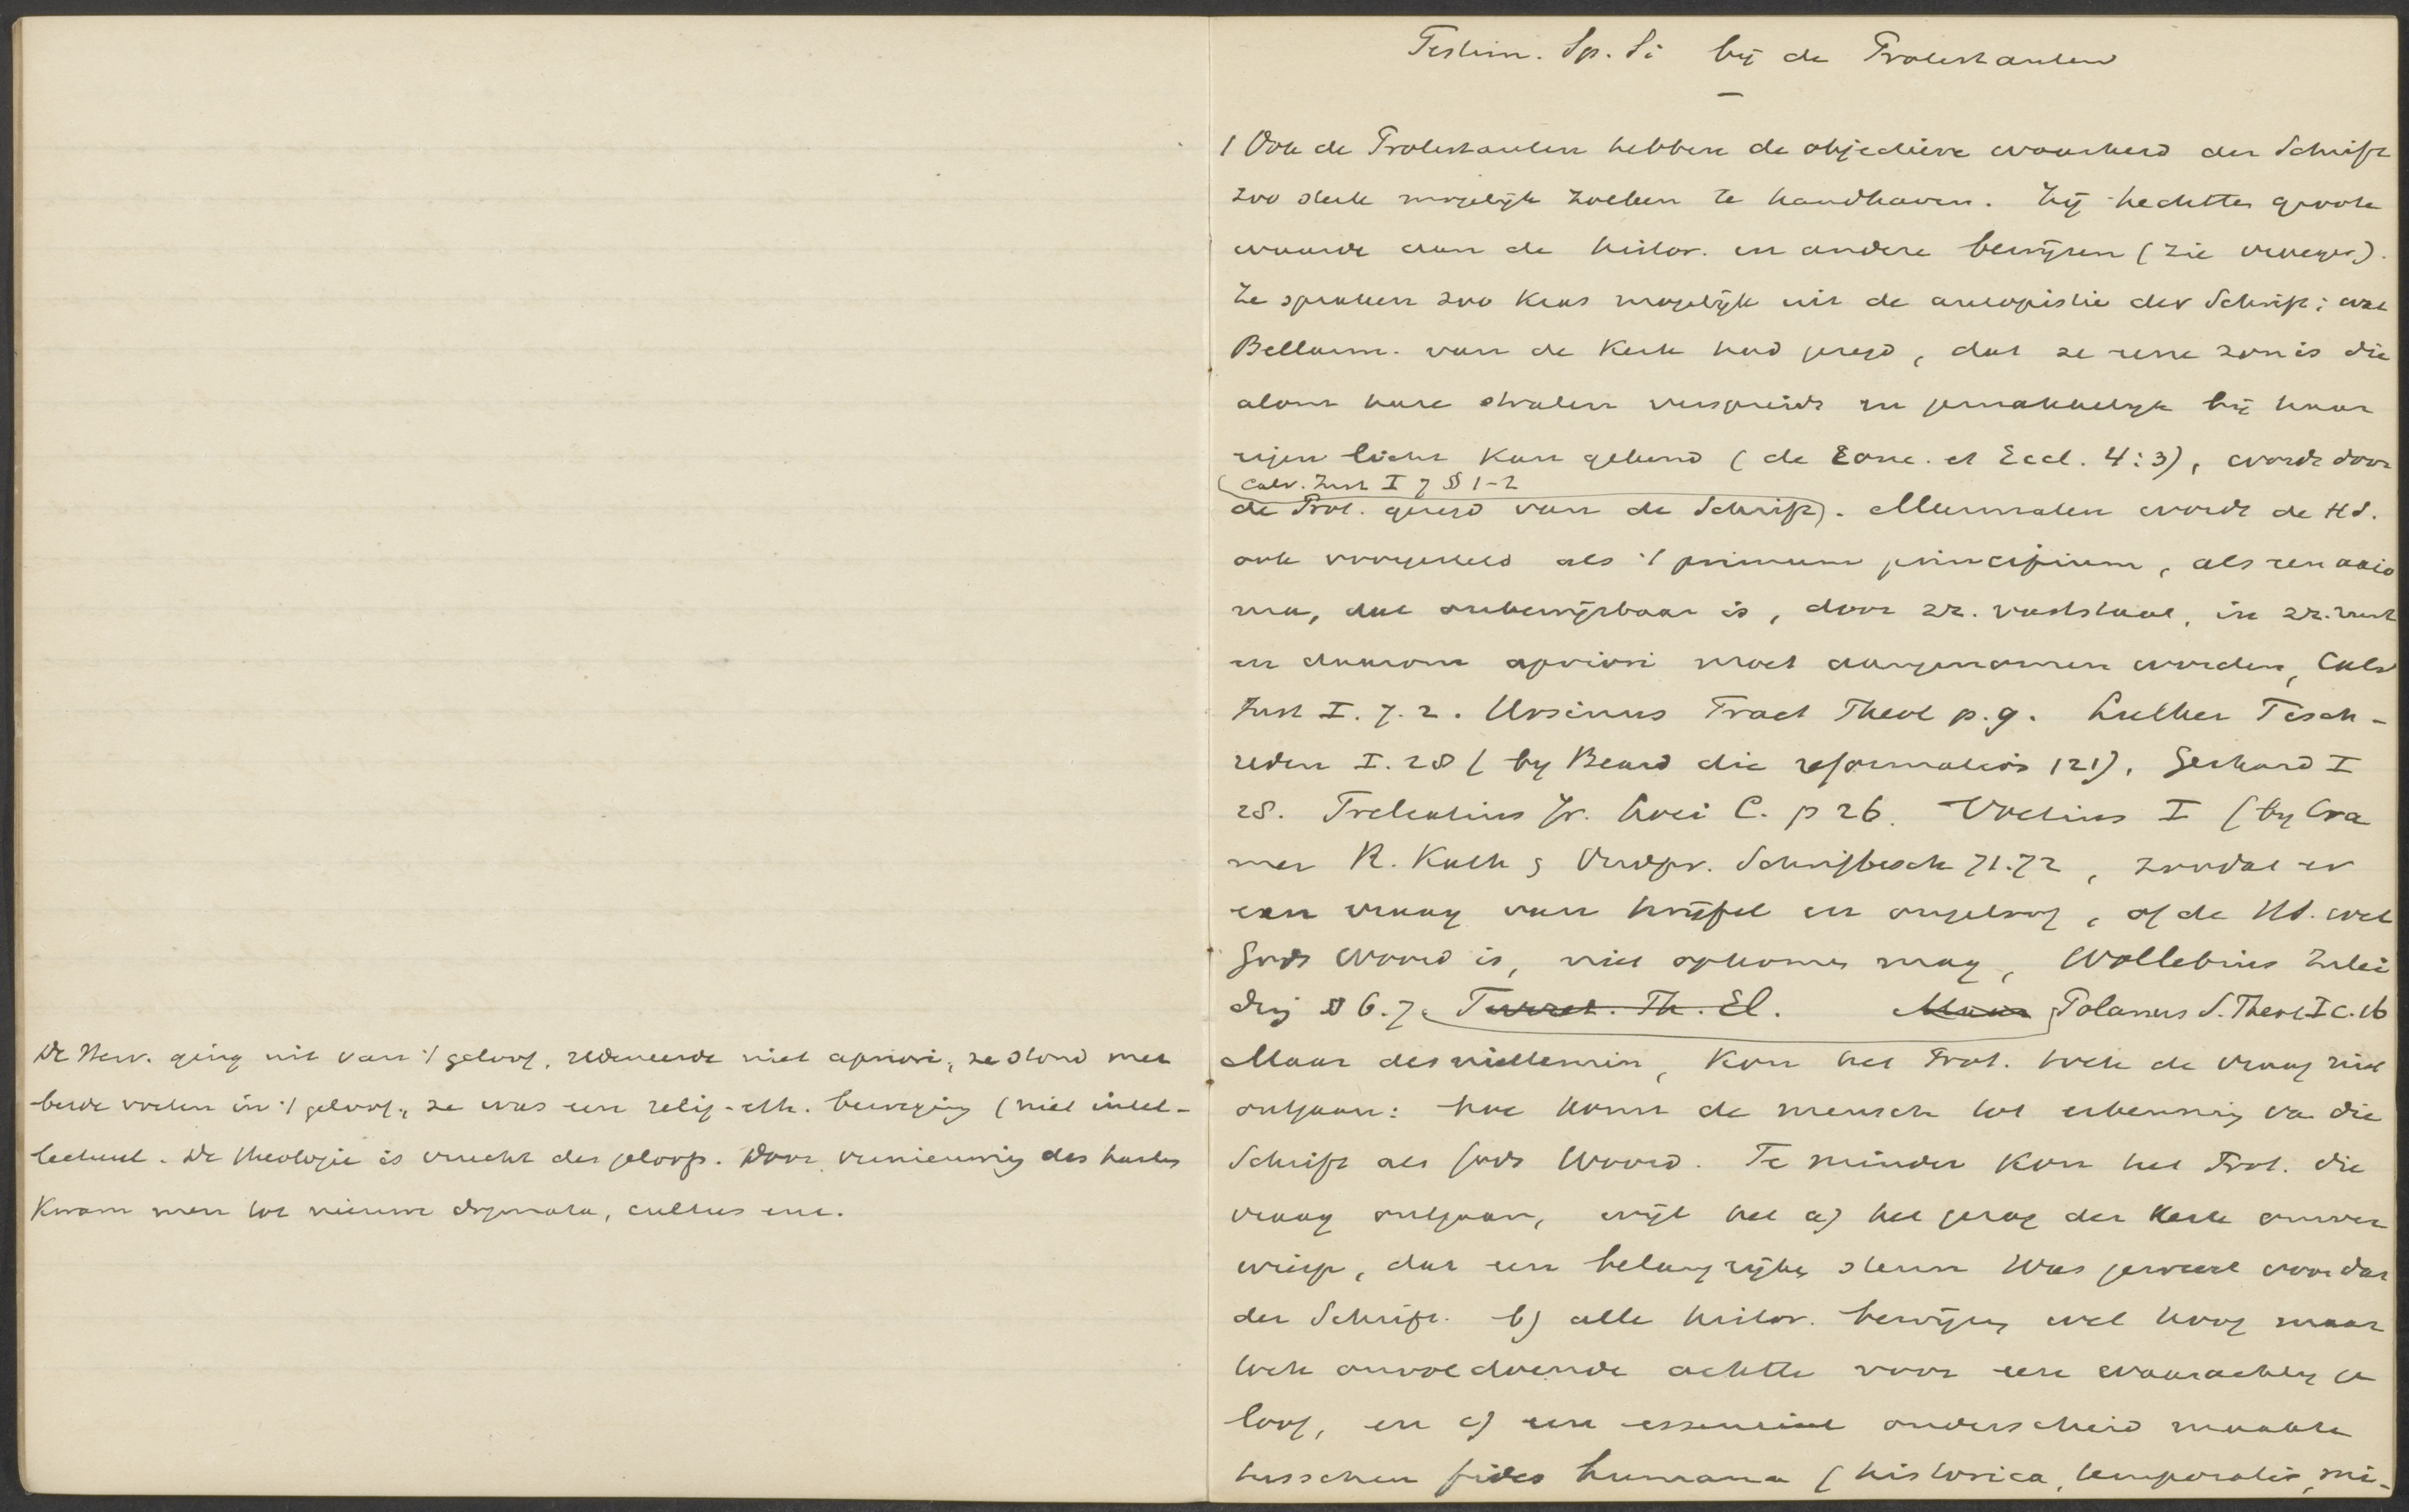 De Herv. ging uit van 't geloof, redeneerde niet apriori, ze stond met
beide voeten in 't geloof, ze was een relig-eth. beweging (niet intel-
lectueel. De theologie is vrucht des geloofs. Door vernieuwing des harten
kwam men tot nieuwe dogmata, cultus enz.
Testim. Sp. Si bij de Protestanten
1 Ook de Protestanten hebben de objectieve waarheid der Schrift
zoo sterk mogelijk zoeken te handhaven. Zij hechtten groote
waarde aan de histor. en andere bewijzen (zie vroeger).
Ze spraken zoo kras mogelijk uit de autopistie der Schrift; wat
Bellarm. van de Kerk had gezegd, dat ze eene zon is die
alom hare stralen verspreidt en gemakkelijk bij haar
eigen licht kan gekend (de Conc. et Eccl. 4:3), wordt door
Calv. Inst I 7 § 1-2
de Prot. gezegd van de Schrift). Meermalen wordt de HS.
ook voorgesteld als 't primum principium, als een axio
ma, dat onbewijsbaar is, door zz. vaststaat, in zz. rust
en daarom apriori moet aangenomen worden, Calv
Inst I. 7. 2. Ursinus Tract Theol p. 9. Luther Tisch-
reden I. 28 (by Beard die reformation 121), Gerhard I
28. Trelcatius Jr. Loci C. p 26. Voetius I (by Cra
mer R. Kath & Protest. Schriftbesch 71.72, zoodat er
een vraag van twijfel en ongeloof, of de HS. wel
Gods Woord is, niet opkomen mag, Wollebius Inlei
ding § 6. 7. Turret. Th. El. Polanus S. Theol I c. 16
Maar desniettemin, kon het Prot. toch de vraag niet
ontgaan: hoe komt de mensch tot erkenning van die
Schrift als Gods Woord. Te minder kon het Prot. die
vraag ontgaan, wijl het a) het gezag der Kerk omver
wierp, dat een belangrijke steun was geweest voor dat
der Schrift. b) alle histor. bewijzen wel hoog maar
toch onvoldoende achtte voor een waarachtig ge
loof, en c) een essentieel onderscheid maakte
tusschen fides humana (historica, temporalis, mi-